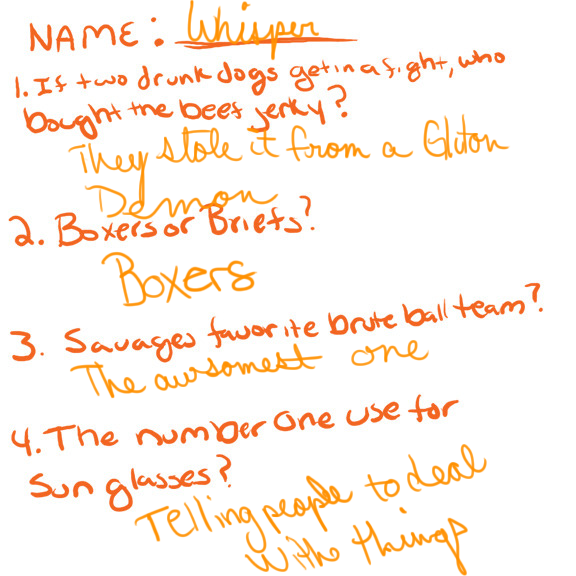 NAME: Whisper
1. If two drunk dogs get in a fight, who
bought the beef jerky?
They stole it from a Gluton
Demon
2. Boxers or Briefs?
Boxers
3. Savages favorite brute ball team?
The awsomest one
4. The number one use for
sun glasses?
Telling people to deal
withe things